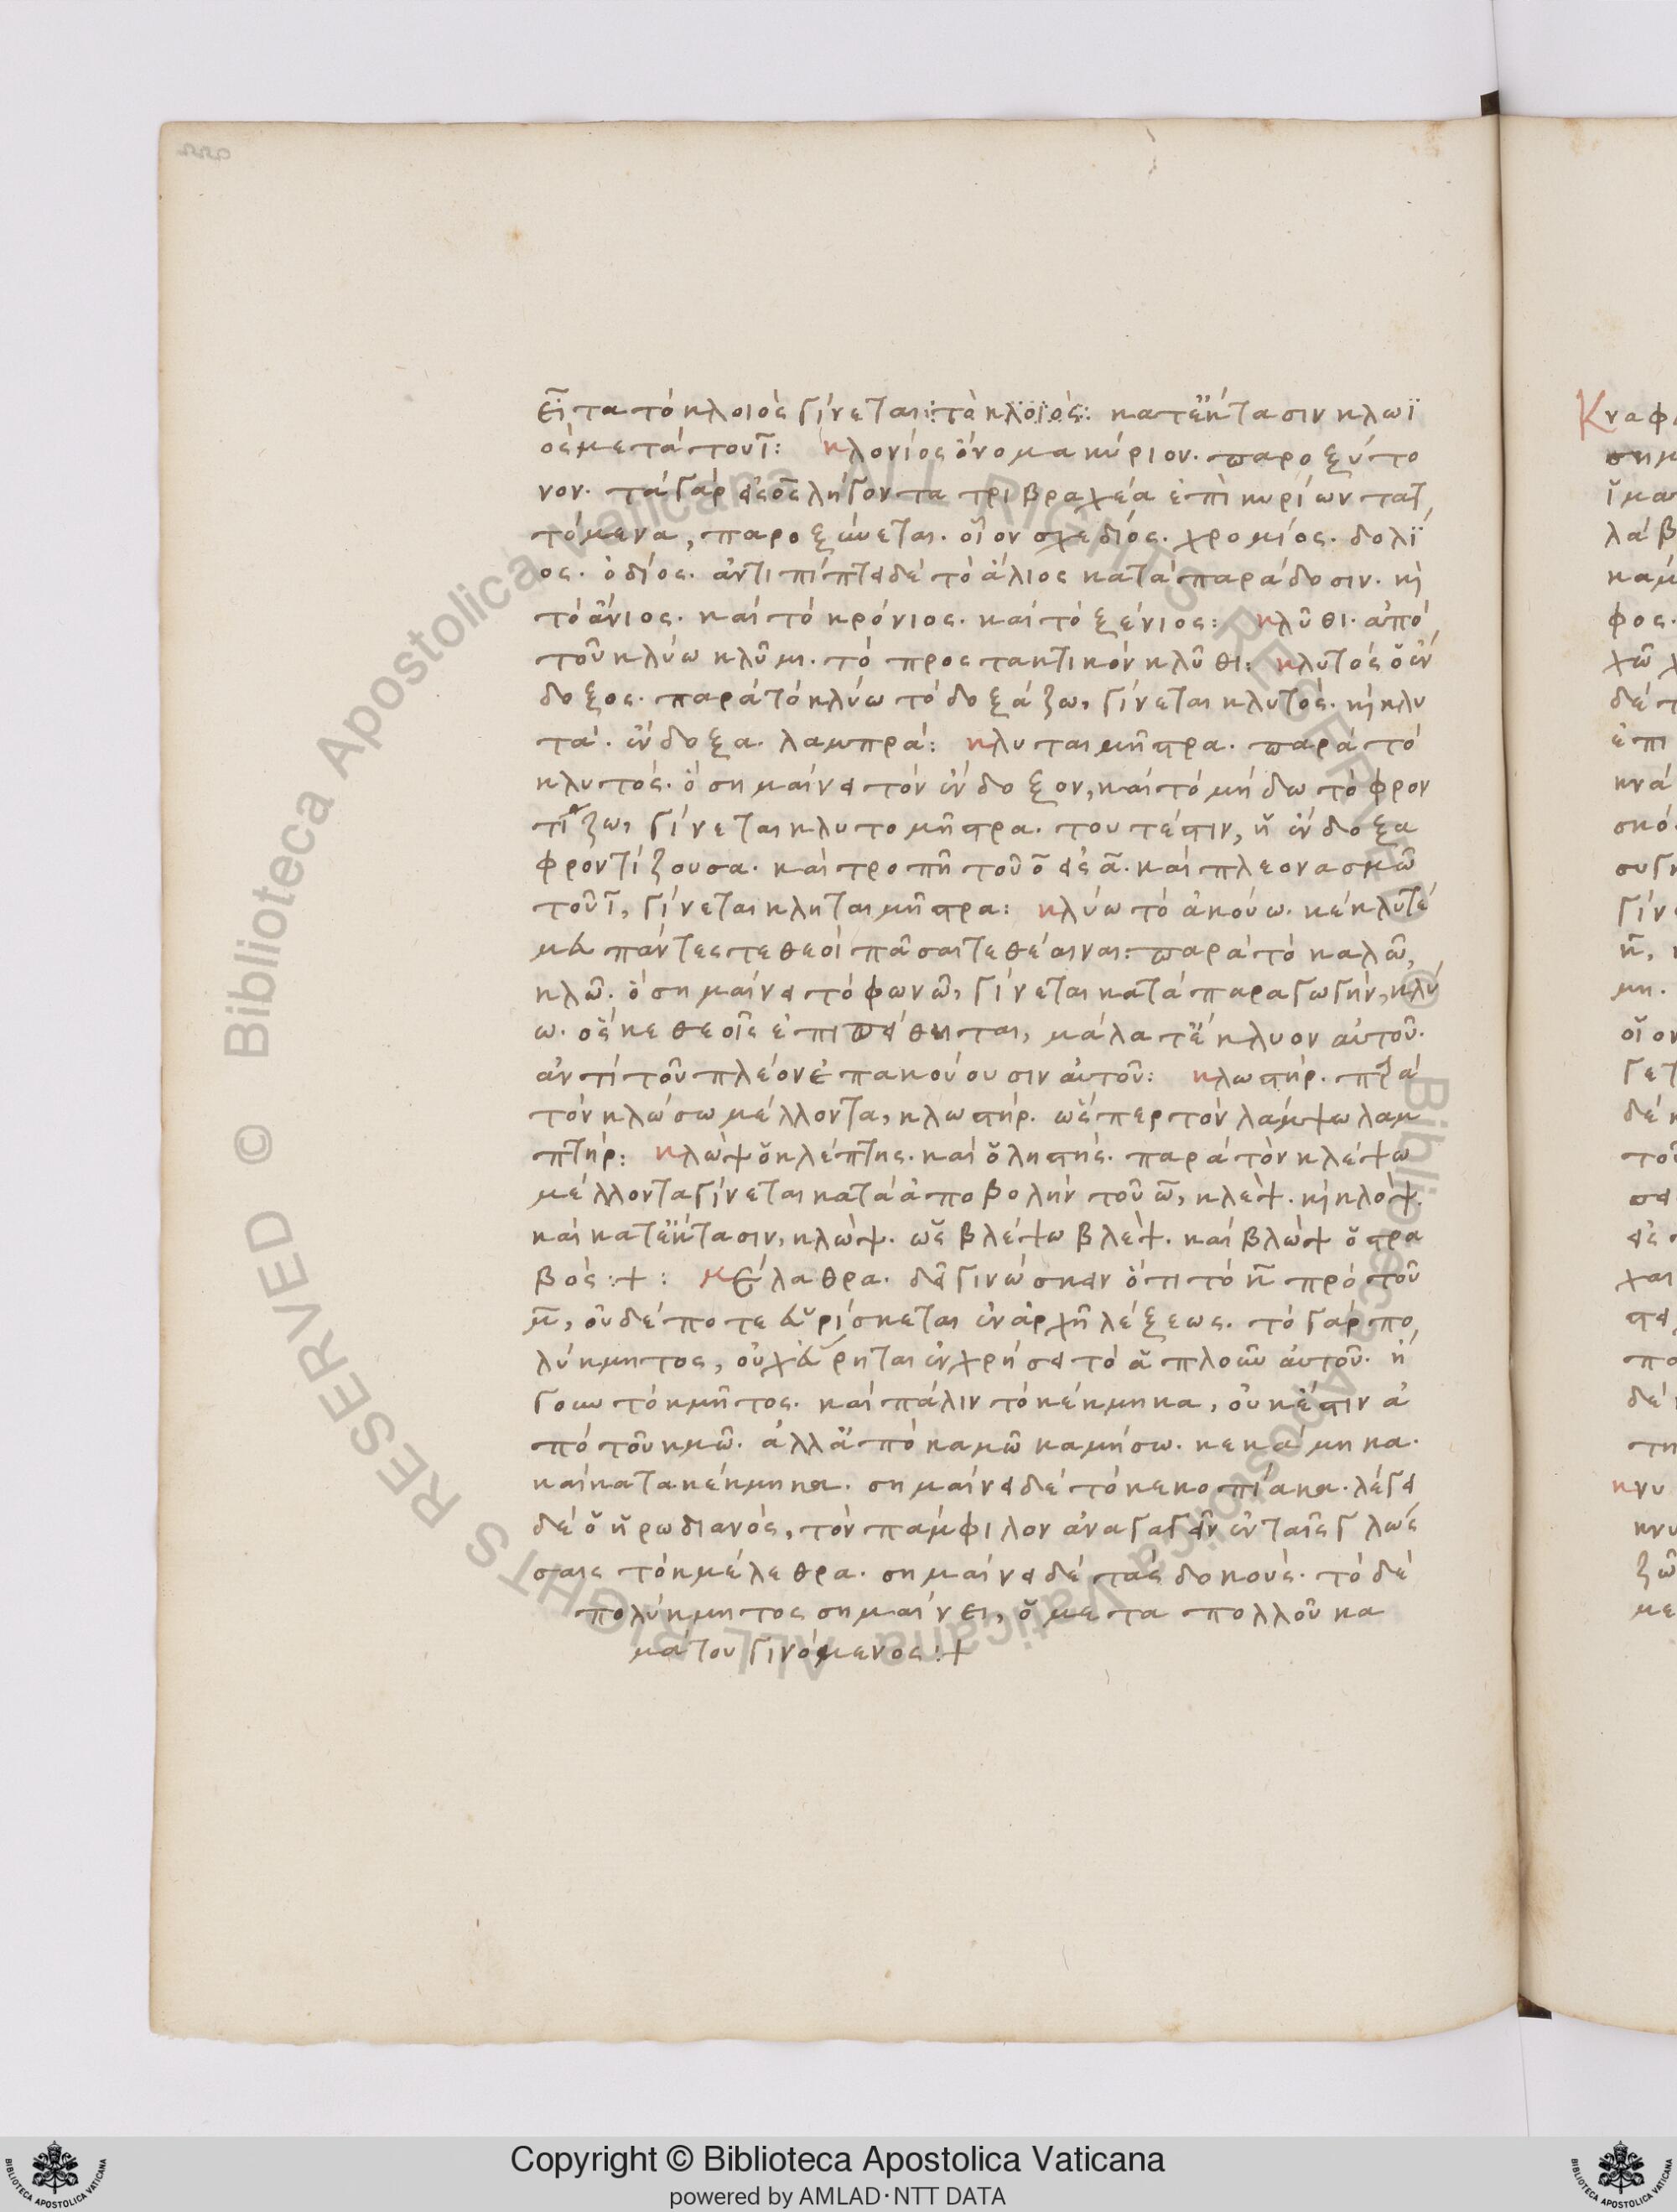 εῖτα τὸ κλοιὸς γίνεται: τὸ κλοϊός: κατ' ἔκτασιν κλωϊ
ὸς μετὰ τοῦ ῑ: κλονίος ὄνομα κύριον. παροξύτο
νον. τὰ γὰρ εἰς ο̄ς λήγοντα τριβραχέα ἐπὶ κυρίων τατ
τόμενα, παροξύνεται. οἷον σχεδίος. χρομίος. δολί
ος. ὁδίος. ἀντιπίπτει δὲ τὸ ἅλιος κατὰ παράδοσιν. καὶ
τὸ ἄνιος. καὶ τὸ κρόνιος. καὶ τὸ ξένιος: κλῦθι. ἀπὸ
τοῦ κλύω κλῦμι. τὸ προστακτικὸν κλῦθι: κλυτὸς ὁ ἔν
δοξος. παρὰ τὸ κλύω τὸ δοξάζω, γίνεται κλυτός. καὶ κλυ
τά. ἔνδοξα. λαμπρά: κλυταιμῆστρα. παρὰ τὸ
κλυτός. ὁ σημαίνει τὸν ἔνδοξον, καὶ τὸ μήδω τὸ φρον
τίζω, γίνεται κλυτομῆστρα. τουτέστιν, ἡ ἔνδοξα
φροντίζουσα. καὶ τροπῆ τοῦ ο̄ εἰς ᾱ. καὶ πλεονασμῶ
τοῦ ῑ, γίνεται κληταιμῆστρα: κλύω τὸ ἀκούω. κέκλυτέ
μευ πάντες τε θεοὶ πᾶσαί τε θέαιναι: παρὰ τὸ καλῶ,
κλῶ. ὁ σημαίνει τὸ φωνῶ, γίνεται κατὰ παραγωγὴν, κλύ
ω. ὅς κε θεοῖς ἐπιπείθηται, μάλα τ' ἔκλυον αὐτοῦ.
ἀντὶ τοῦ πλέον ἐπακούουσιν αὐτοῦ: κλωστήρ. παρὰ
τὸν κλώσω μέλλοντα, κλωστήρ. ὥσπερ τὸν λάμψω λαμ
πτήρ: κλὼψ ὁ κλέπτης. καὶ ὁ ληστής. παρὰ τὸν κλέψω
μέλλοντα γίνεται κατὰ ἀποβολὴν τοῦ ω̄, κλὲψ. καὶ κλὸψ.
καὶ κατ' ἔκτασιν, κλώψ. ὡς βλέψω βλέψ. καὶ βλὼψ ὁ στρα
βός :+: κμέλαθρα. δεῖ γινώσκειν ὅτι τὸ κ̄ πρὸ τοῦ
μ̄, οὐδέποτε εὑρίσκεται ἐν ἀρχῇ λέξεως. τὸ γὰρ πο
λύκμητος, οὐχ εὕρηται ἐν χρήσει τὸ ἁπλοῦν αὐτοῦ. ἤ
γουν τὸ κμῆτος. καὶ πάλιν τὸ κέκμηκα, οὐκ ἔστιν ἀ
πὸ τοῦ κμῶ. ἀλλ' ἀπὸ καμῶ καμήσω. κεκάμηκα.
καὶ κατα κέκμηκα. σημαίνει δὲ τὸ κεκοπίακα. λέγει
δὲ ὁ ἡρωδιανὸς, τὸν πάμφιλον ἀναγαγεῖν ἐν ταῖς γλώσ
σαις τὸ κμέλεθρα. σημαίνει δὲ τὰς δοκούς. τὸ δὲ
πολύκμητος σημαίνει, ὁ μετα πολλοῦ κα
μάτου γινόμενος :+
Copyright © Biblioteca Apostolica Vaticana
powered by AMLAD·NTT DATA